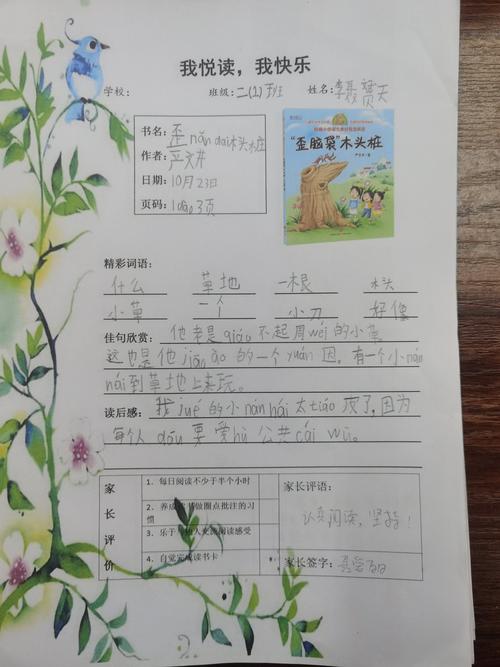 我悦读，我快乐
学校： 班级：二(1)班 姓名：李
书名：歪nǎn dai木头桩
作者：严文井
日期：10月23日
页码：3页
"歪脑袋"木头桩
精彩词语：
什么 草地 一根 木头
小草 一个 小刀 好像
佳句欣赏：他老是qiáo不起周wéi的小草
这也是他jiāo ào的一个yuán因。有一个小nán
hái到草地上来玩。
读后感：我jué的小nán hái太tiáo皮了，因为
每个人dōu要爱hù公共cái wù。
家长评价
1、每日阅读不少于半个小时
2、养成读书做圈点批注的习惯
3、乐于与他人交流阅读感受
4、自觉完成读书卡
家长评语：
认真阅读，坚持！
家长签字：